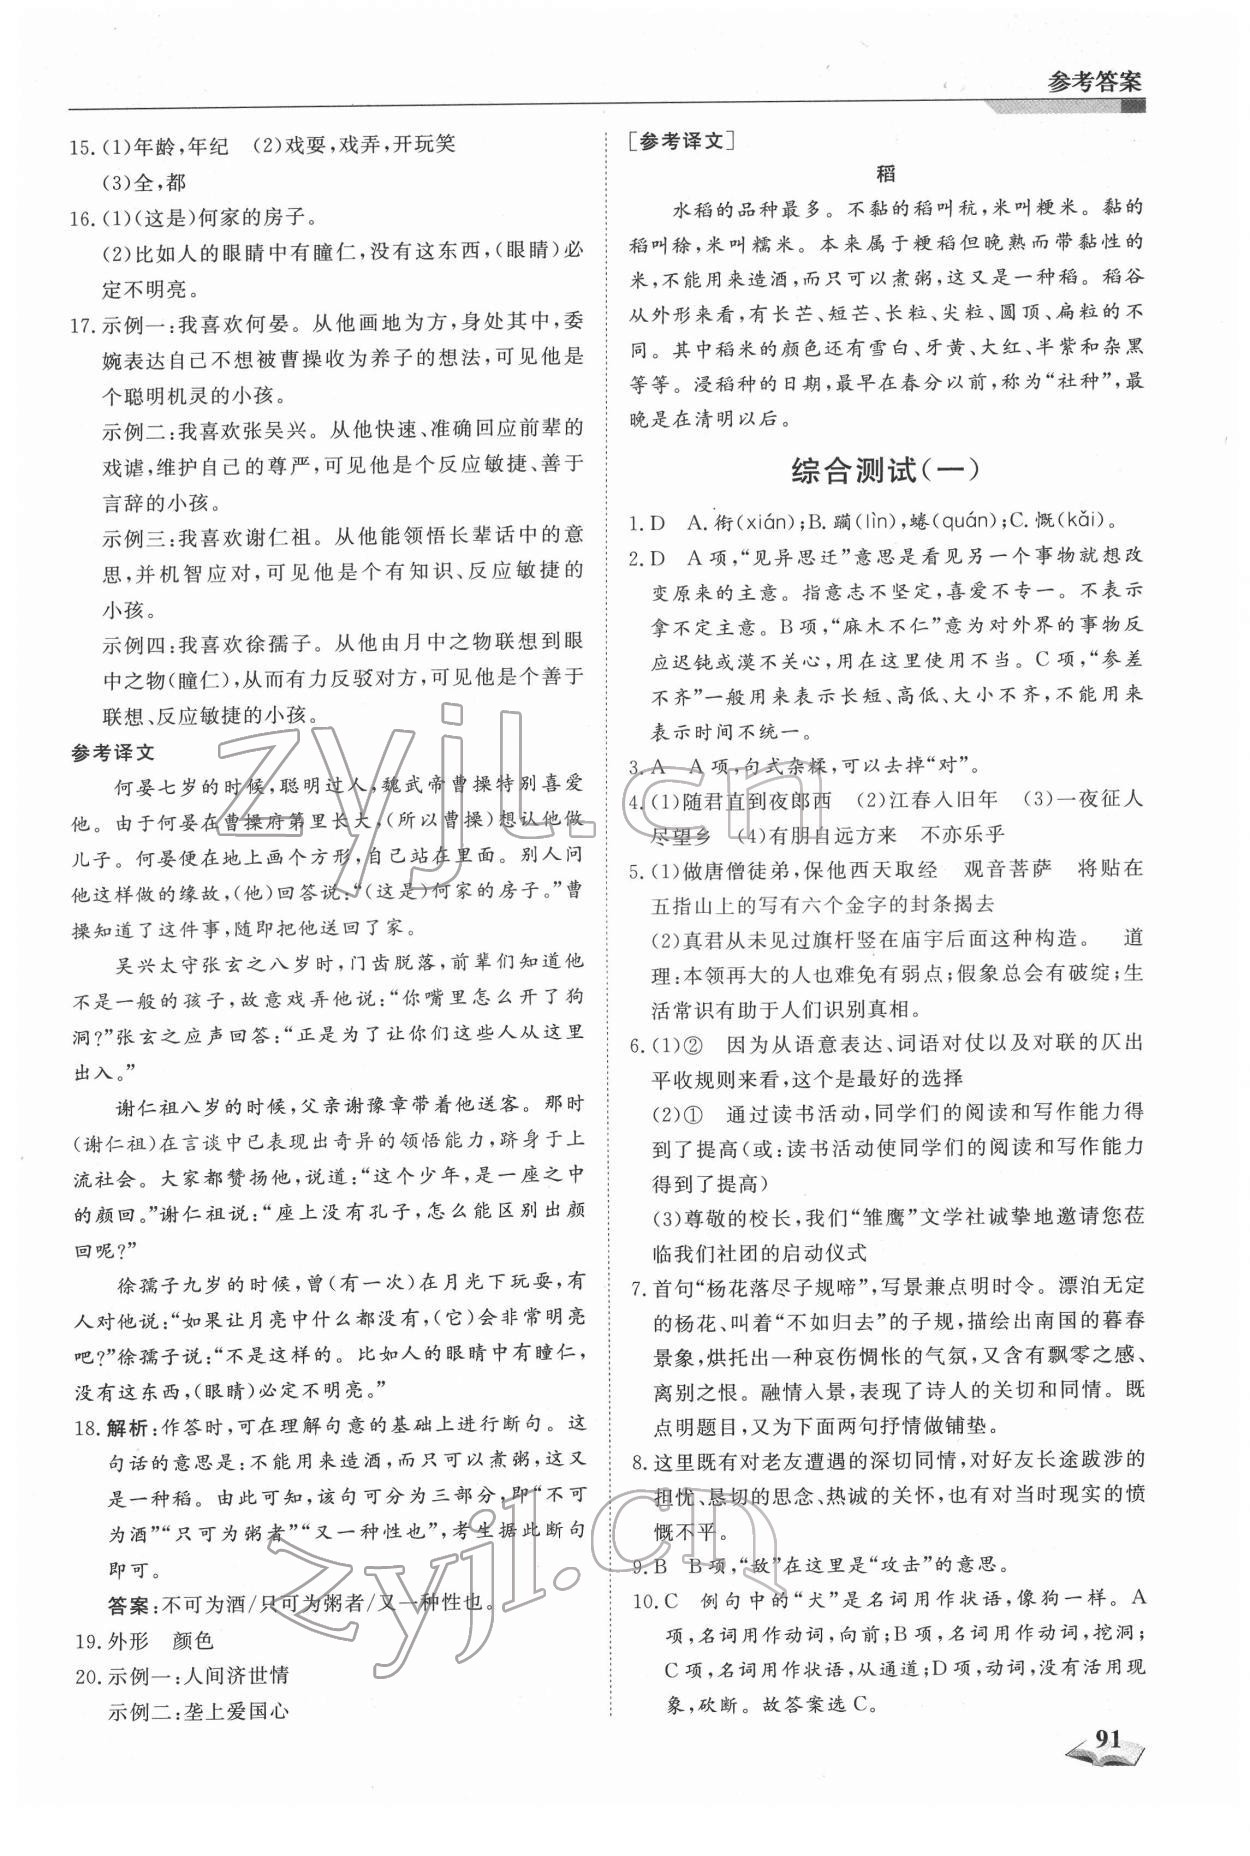 参考答案
15. (1)年龄,年纪　(2)戏耍,戏弄,开玩笑
(3)全,都
16. (1)(这是)何家的房子。
(2)比如人的眼睛中有瞳仁,没有这东西,(眼睛)必
定不明亮。
17. 示例一:我喜欢何晏。从他画地为方,身处其中,委
婉表达自己不想被曹操收为养子的想法,可见他是
个聪明机灵的小孩。
示例二:我喜欢张吴兴。从他快速、准确回应前辈的
戏谑,维护自己的尊严,可见他是个反应敏捷、善于
言辞的小孩。
示例三:我喜欢谢仁祖。从他能领悟长辈话中的意
思,并机智应对,可见他是个有知识、反应敏捷的
小孩。
示例四:我喜欢徐孺子。从他由月中之物联想到眼
中之物(瞳仁),从而有力反驳对方,可见他是个善于
联想、反应敏捷的小孩。
参考译文
何晏七岁的时候,聪明过人,魏武帝曹操特别喜爱
他。由于何晏在曹操府第里长大,(所以曹操)想认他做
儿子。何晏便在地上画个方形,自己站在里面。别人问
他这样做的缘故,(他)回答说:“(这是)何家的房子。”曹
操知道了这件事,随即把他送回了家。
吴兴太守张玄之八岁时,门齿脱落,前辈们知道他
不是一般的孩子,故意戏弄他说:“你嘴里怎么开了狗
洞?”张玄之应声回答:“正是为了让你们这些人从这里
出入。”
谢仁祖八岁的时候,父亲谢豫章带着他送客。那时
(谢仁祖)在言谈中已表现出奇异的领悟能力,跻身于上
流社会。大家都赞扬他,说道:“这个少年,是一座之中
的颜回。”谢仁祖说:“座上没有孔子,怎么能区别出颜
回呢?”
徐孺子九岁的时候,曾(有一次)在月光下玩耍,有
人对他说:“如果让月亮中什么都没有,(它)会非常明亮
吧?”徐孺子说:“不是这样的。比如人的眼睛中有瞳仁,
没有这东西,(眼睛)必定不明亮。”
18. 解析:作答时,可在理解句意的基础上进行断句。这
句话的意思是:不能用来造酒,而只可以煮粥,这又
是一种稻。由此可知,该句可分为三部分,即“不可
为酒”“只可为粥者”“又一种性也”,考生据此断句
即可。
答案:不可为酒/只可为粥者/又一种性也。
19. 外形　颜色
20. 示例一:人间济世情
示例二:垄上爱国心
[参考译文]
稻
水稻的品种最多。不黏的稻叫秔,米叫粳米。黏的
稻叫稌,米叫糯米。本来属于粳稻但晚熟而带黏性的
米,不能用来造酒,而只可以煮粥,这又是一种稻。稻谷
从外形来看,有长芒、短芒、长粒、尖粒、圆顶、扁粒的不
同。其中稻米的颜色还有雪白、牙黄、大红、半紫和杂黑
等等。浸稻种的日期,最早在春分以前,称为“社种”,最
晚是在清明以后。
综合测试(一)
1. D　A. 衔(xián);B. 蹒(lìn),蜷(quán);C. 慨(kǎi)。
2. D　A 项,“见异思迁”意思是看见另一个事物就想改
变原来的主意。指意志不坚定,喜爱不专一。不表示
拿不定主意。B 项,“麻木不仁”意为对外界的事物反
应迟钝或漠不关心,用在这里使用不当。C 项,“参差
不齐”一般用来表示长短、高低、大小不齐,不能用来
表示时间不统一。
3. A　A 项,句式杂糅,可以去掉“对”。
4. (1)随君直到夜郎西　(2)江春入旧年　(3)一夜征人
尽望乡　(4)有朋自远方来　不亦乐乎
5. (1)做唐僧徒弟,保他西天取经　观音菩萨　将贴在
五指山上的写有六个金字的封条揭去
(2)真君从未见过旗杆竖在庙宇后面这种构造。　道
理:本领再大的人也难免有弱点;假象总会有破绽;生
活常识有助于人们识别真相。
6. (1)②　因为从语意表达、词语对仗以及对联的仄出
平收规则来看,这个是最好的选择
(2)①　通过读书活动,同学们的阅读和写作能力得
到了提高(或:读书活动使同学们的阅读和写作能力
得到了提高)
(3)尊敬的校长,我们“雏鹰”文学社诚挚地邀请您莅
临我们社团的启动仪式
7. 首句“杨花落尽子规啼”,写景兼点明时令。漂泊无定
的杨花、叫着“不如归去”的子规,描绘出南国的暮春
景象,烘托出一种哀伤惆怅的气氛,又含有飘零之感、
离别之恨。融情入景,表现了诗人的关切和同情。既
点明题目,又为下面两句抒情做铺垫。
8. 这里既有对老友遭遇的深切同情,对好友长途跋涉的
担忧、恳切的思念、热诚的关怀,也有对当时现实的愤
慨不平。
9. B　B 项,“敌”在这里是“攻击”的意思。
10. C　例句中的“犬”是名词用作状语,像狗一样。A
项,名词用作动词,向前;B 项,名词用作动词,挖洞;
C 项,名词用作状语,从通道;D 项,动词,没有活用现
象,砍断。故答案选 C。
91
zyjl.cn
zyjl.cn